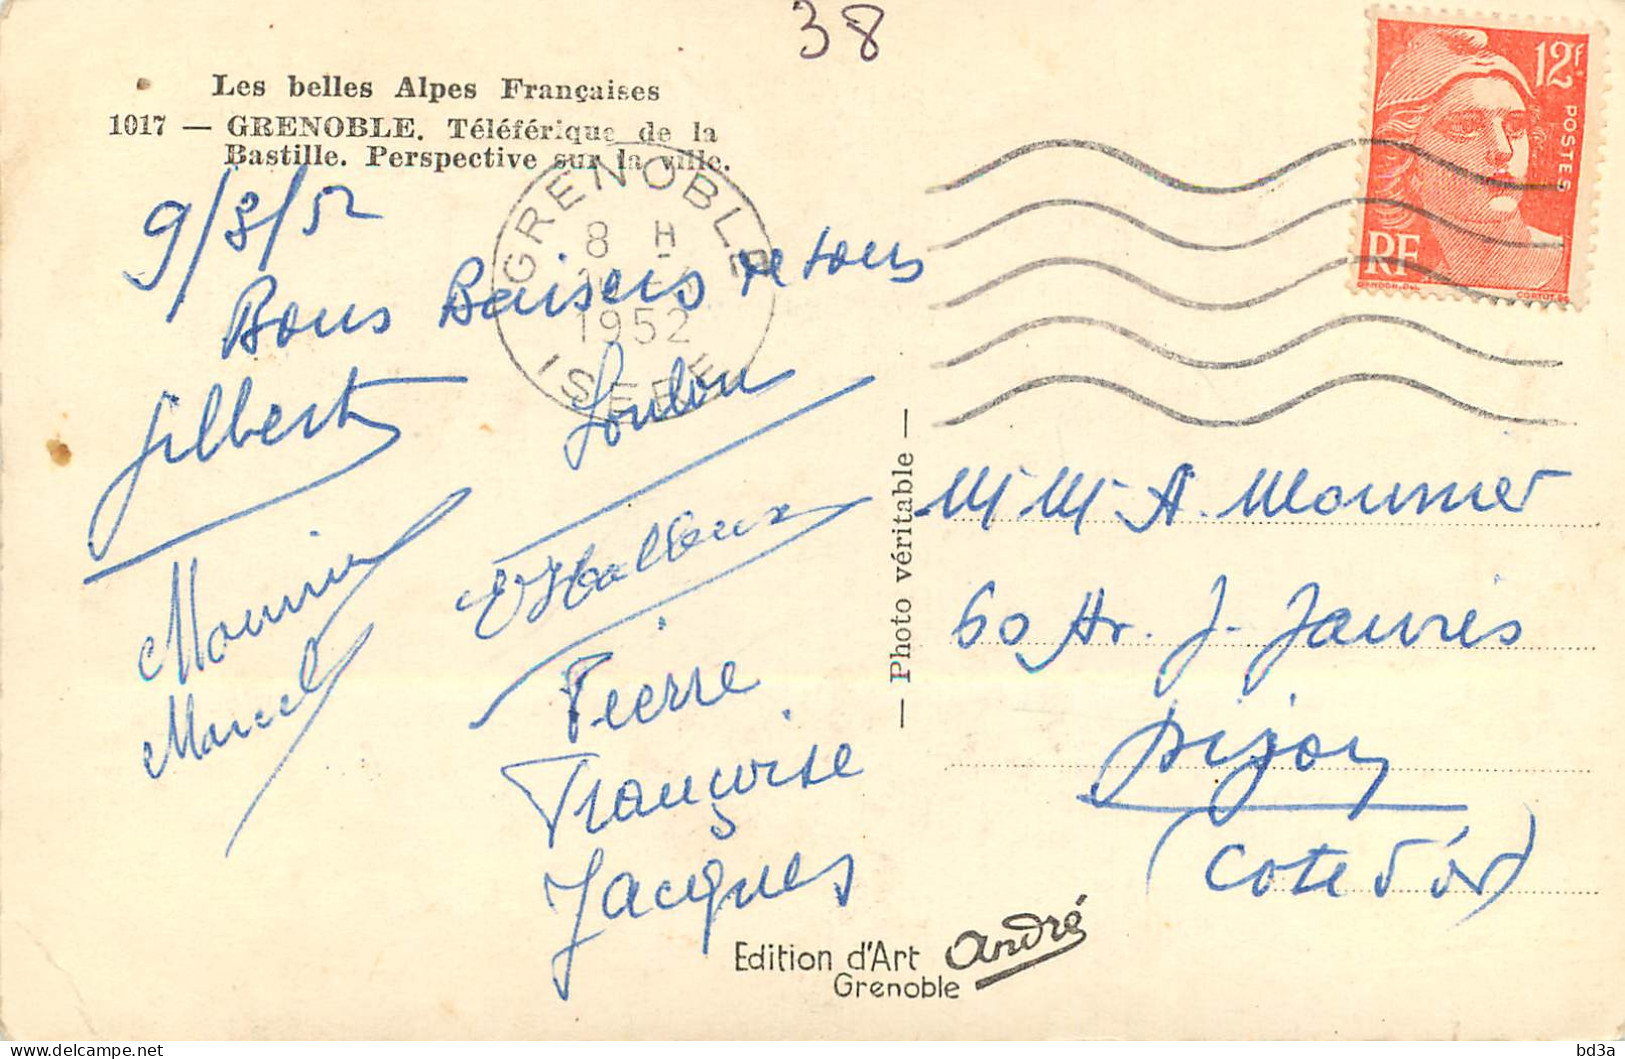 38
Les belles Alpes Françaises
1017 — GRENOBLE. Téléférique de la
Bastille. Perspective sur la ville.
9/8/52
Bons Baisers de tous
Gilbert Loulou
Mounier
Marcel
Pierre
Françoise
Jacques
GRENOBLE
8 H
1952
ISERE
12f
POSTES
RF
GANDON.DEL
CORTOT.SC
— Photo véritable —
M M A. Mounier
60 Av. J. Jaurès
Dijon
(Cote d'or)
Edition d'Art André
Grenoble
bd3a